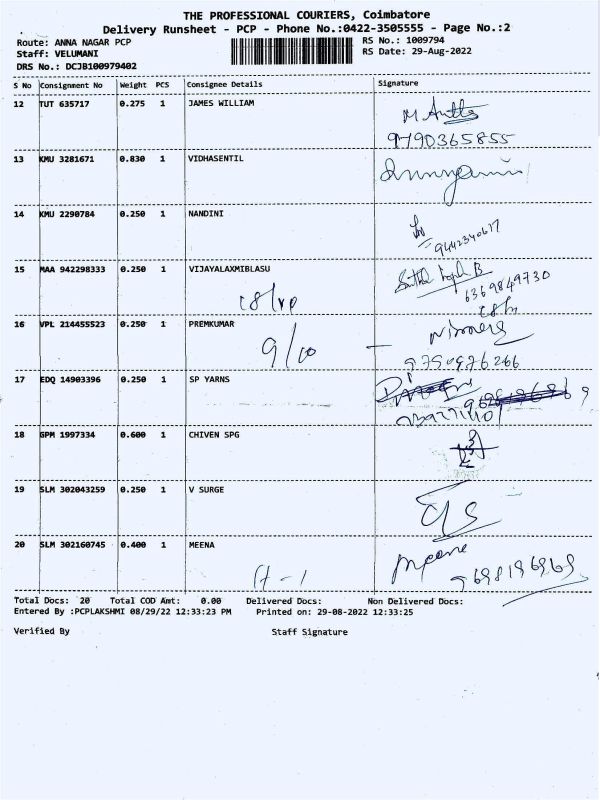 THE PROFESSIONAL COURIERS, Coimbatore
Delivery Runsheet - PCP - Phone No.:0422-3505555 - Page No.:2
Route: ANNA NAGAR PCP RS No.: 1009794
Staff: VELUMANI RS Date: 29-Aug-2022
DRS No.: DCJB100979402
S No Consignment No Weight PCS Consignee Details Signature
12 TUT 635717 0.275 1 JAMES WILLIAM
9790365855
13 KMU 3281671 0.830 1 VIDHASENTIL
14 KMU 2290784 0.250 1 NANDINI
15 MAA 942298333 0.250 1 VIJAYALAXMIBLASU
6369849730
16 VPL 214455523 0.250 1 PREMKUMAR
9750976266
17 EDQ 14903396 0.250 1 SP YARNS
18 GPM 1997334 0.600 1 CHIVEN SPG
19 SLM 302043259 0.250 1 V SURGE
20 SLM 302160745 0.400 1 MEENA
Meena
9698196969
Total Docs: 20 Total COD Amt: 0.00 Delivered Docs: Non Delivered Docs:
Entered By :PCPLAKSHMI 08/29/22 12:33:23 PM Printed on: 29-08-2022 12:33:25
Verified By Staff Signature